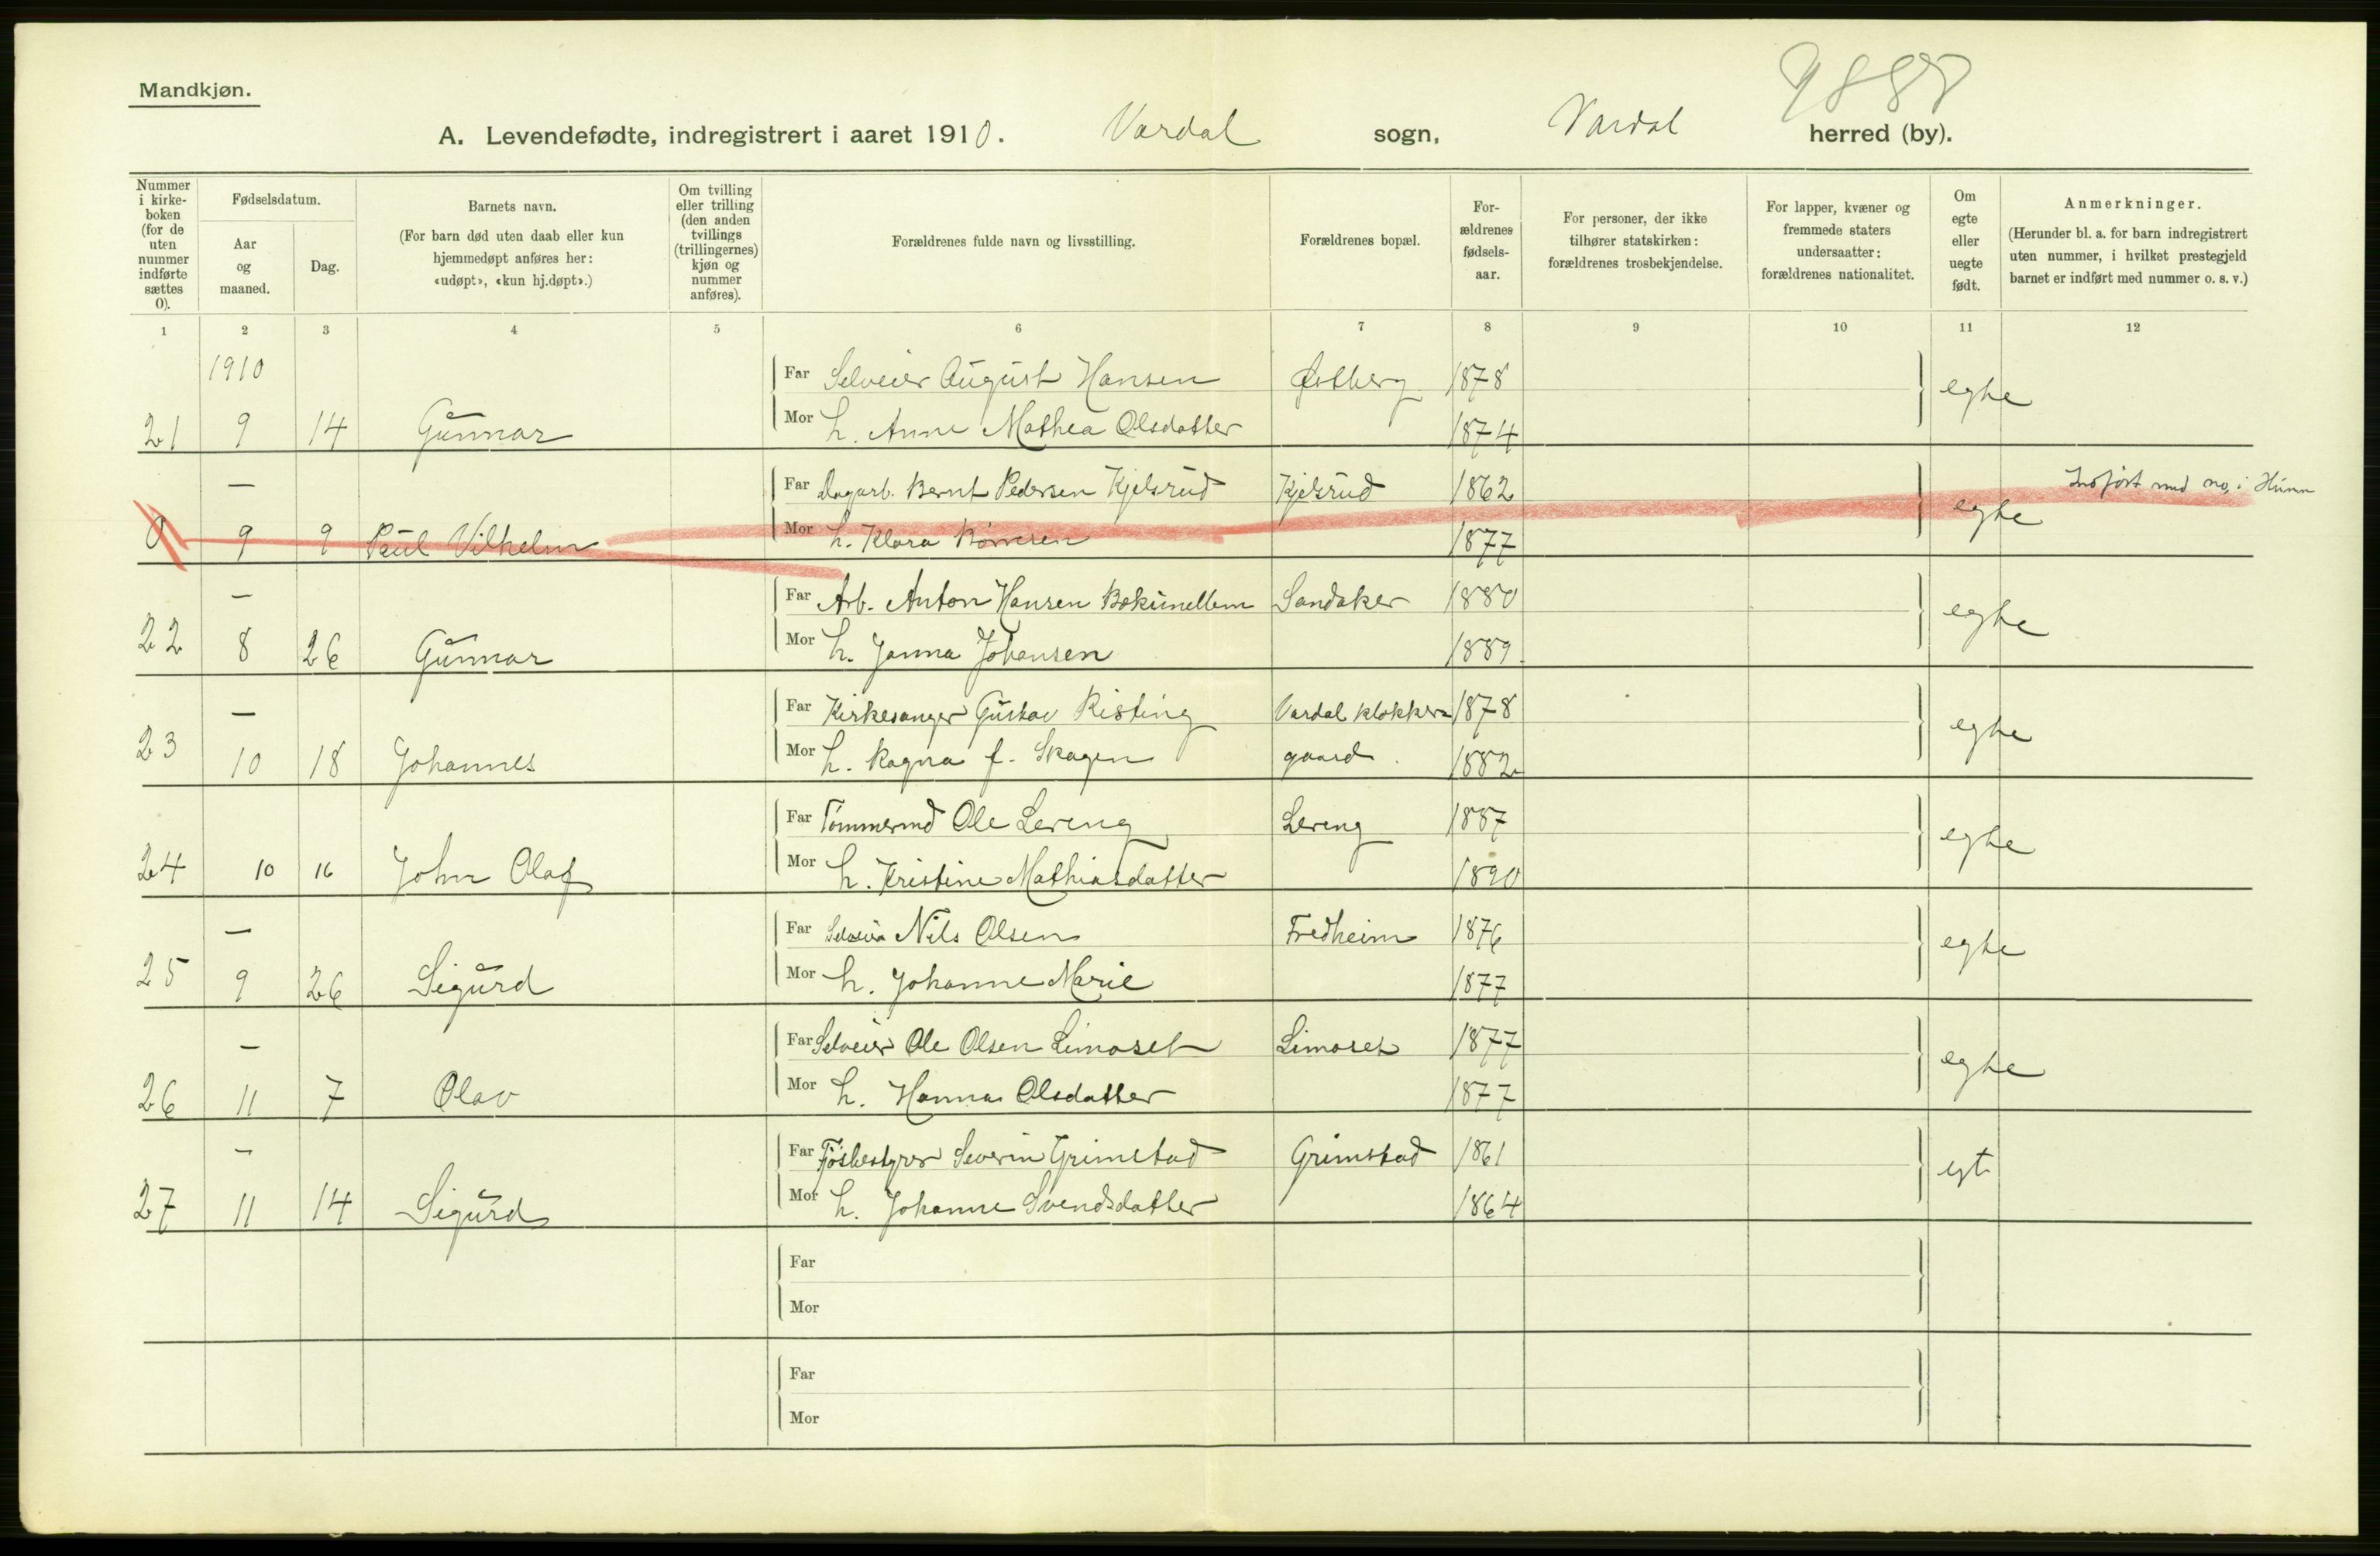 9888
Mandkjøn.
A. Levendefødte, indregistrert i aaret 1910. Vardal sogn, Vardal herred (by).
Nummer i kirke-boken (for de uten nummer indførte sættes 0).
Fødselsdatum.
Aar og maaned.
Dag.
Barnets navn.
(For barn død uten daab eller kun hjemmedøpt anføres her: «udøpt», «kun hj.døpt».)
Om tvilling eller trilling (den anden tvillings (trillingernes) kjøn og nummer anføres).
Forældrenes fulde navn og livsstilling.
Forældrenes bopæl.
For-ældrenes fødsels-aar.
For personer, der ikke tilhører statskirken: forældrenes trosbekjendelse.
For lapper, kvæner og fremmede staters undersaatter: forældrenes nationalitet.
Om egte eller uegte født.
Anmerkninger.
(Herunder bl. a. for barn indregistrert uten nummer, i hvilket prestegjeld barnet er indført med nummer o. s. v.)
1 2 3 4 5 6 7 8 9 10 11 12
1910 Far Selveier August Hansen Østberg 1878
21 9 14 Gunnar Mor h. Anne Mathea Olsdatter 1874 egte
— Far Dagarb. Bernt Pedersen Kjelsrud Kjelsrud 1862 Indført med no. i Hunn
0 9 9 Paul Vilhelm Mor h. Klara 1877 egte
— Far Arb. Anton Hansen Sandaker 1880
22 8 26 Gunnar Mor h. Janna Johansen 1889 egte
— Far Kirkesanger Gustav Risting Vardal klokker- 1878
23 10 18 Johannes Mor h. Ragna f. Skagen gaard 1882 egte
Far Tømmermd Ole Lereng Lereng 1887
24 10 16 John Olaf Mor h. Kristine Mathiasdatter 1890 egte
— Far Selveier Nils Olsen Fredheim 1876
25 9 26 Sigurd Mor h. Johanne Marie 1877 egte
— Far Selveier Ole Olsen Limoset Limoset 1877
26 11 7 Olav Mor h. Hanna Olsdatter 1877 egte
— Far Fjøsbestyrer Severin Grimstad Grimstad 1861
27 11 14 Sigurd Mor h. Johanne Svendsdatter 1864 egt
Far
Mor
Far
Mor